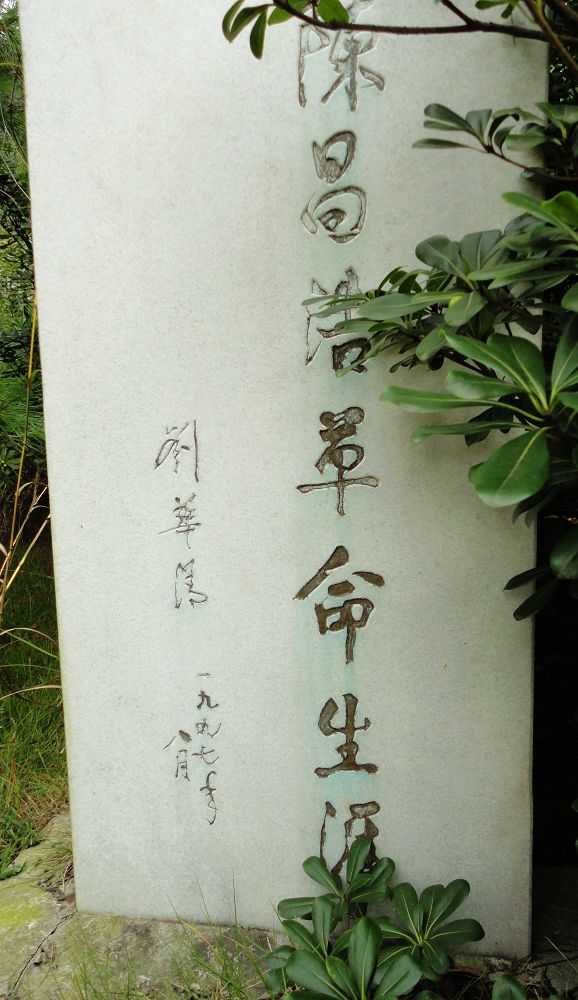 陳昌浩革命生涯
劉華清
一九九七年
八月